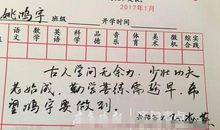 2017年1月
姚鸿宇 班级 开学时间
语文 数学 英语 科学 品德 音乐 体育 美术 微机 综合实践
古人学问无余力，少壮功夫
老始成，勤学苦练需趁早，希
望鸿宇要做到。